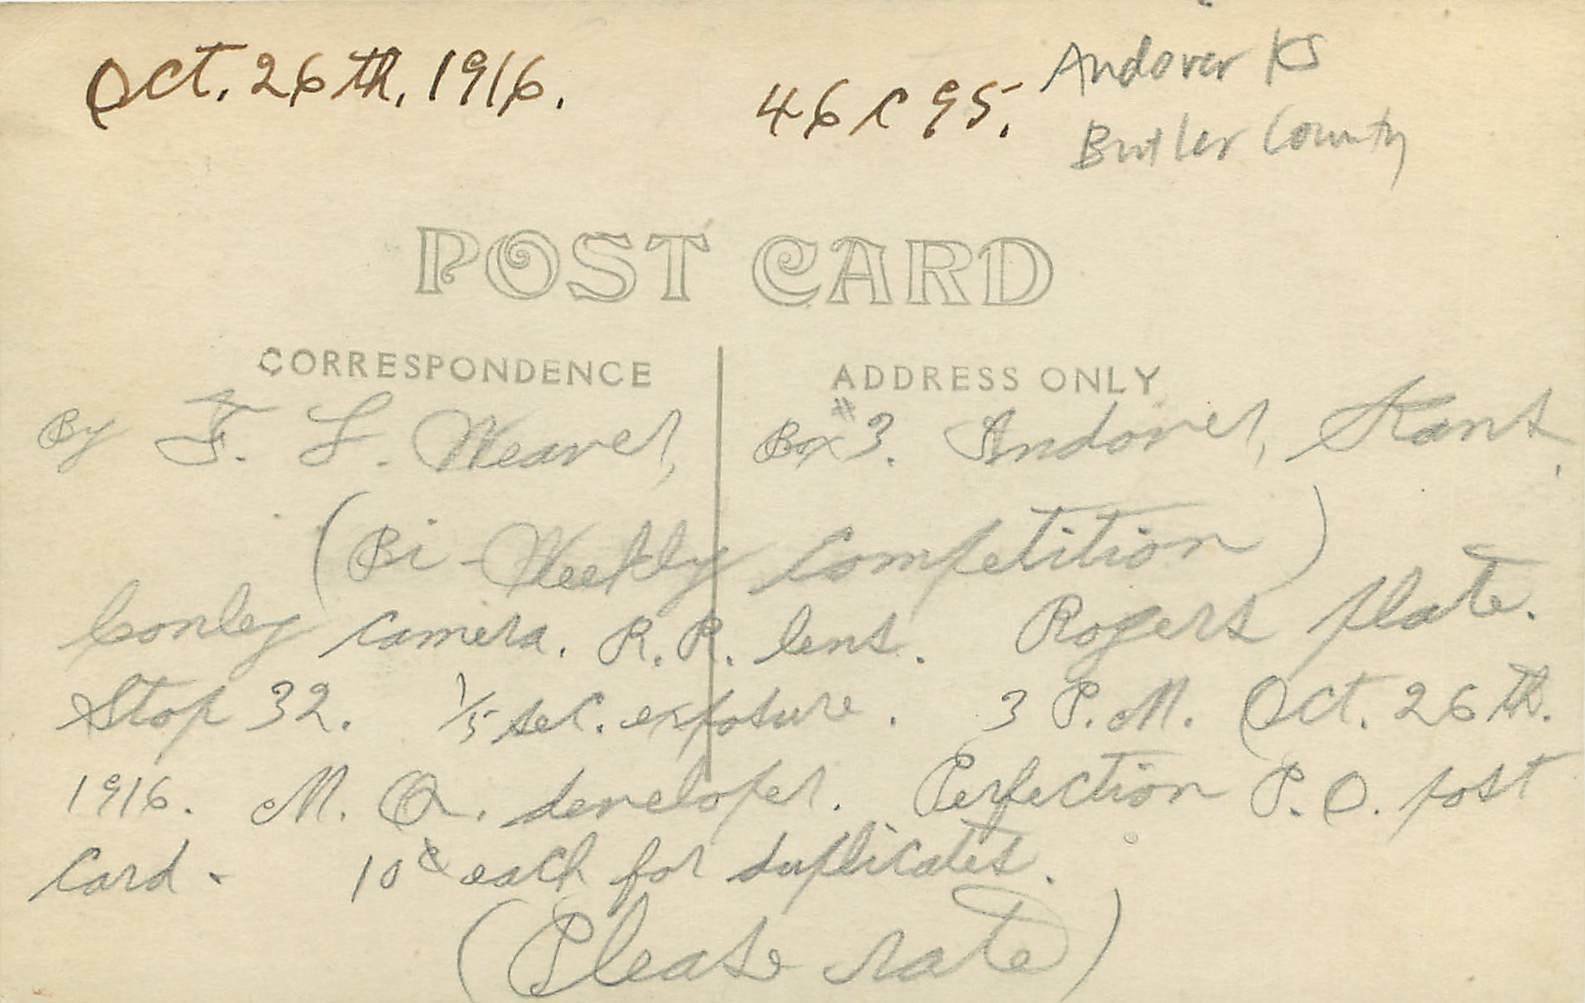 Oct. 26th, 1916.
46 c 95.
Andover KS
Butler County
POST CARD
CORRESPONDENCE
ADDRESS ONLY
By F. L. Weaver, Box #3. Andover, Kans.
(Bi-Weekly Competition)
Conley Camera. R. R. lens. Rogers plate.
Stop 32. 1/5 sec. exposure. 3 P.M. Oct. 26th.
1916. M. Q. developer. Perfection P. O. post
Card. 10¢ each for duplicates.
(Please rate)